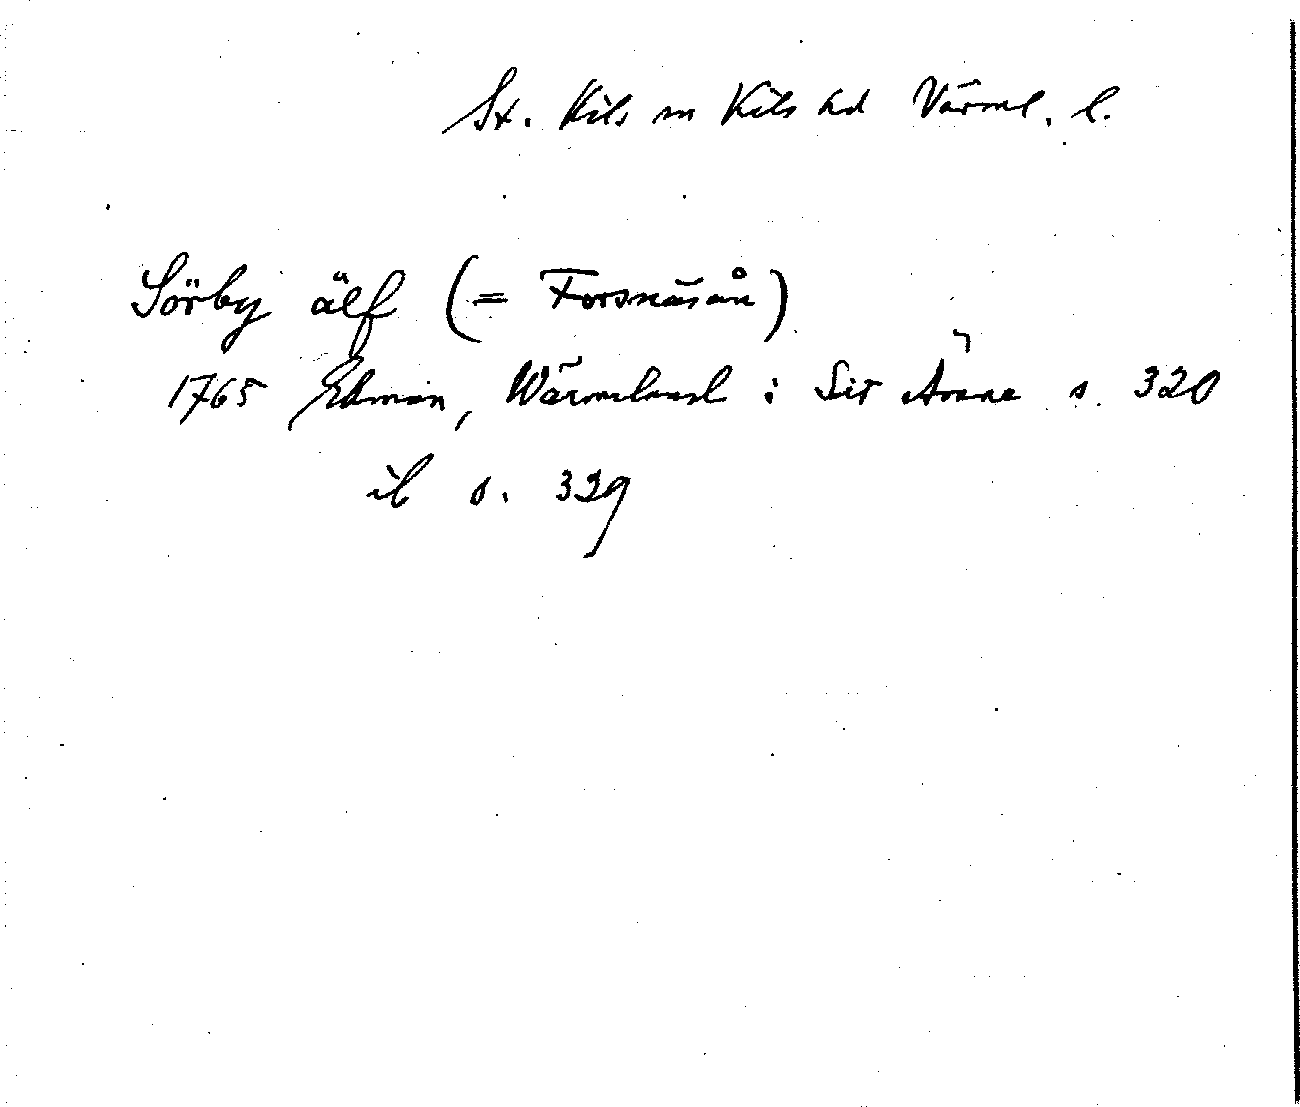 St. Kils sn Kils hd Värml. l.
Sörby älf (= Forsnäsån)
1765 Edman, Wärmeland i Sit Ämne s. 320
ib s. 329